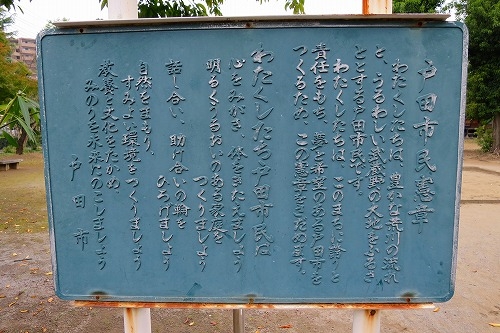 戸田市民憲章
わたくしたちは、豊かな荒川の流れ
と、うるわしい武蔵野の大地をふるさ
とする戸田市民です。
わたくしたちは、このまちに誇りと
責任をもち、夢と希望のある戸田市を
つくるため、この憲章をさだめます。
わたくしたち戸田市民は
心をみがき、体をきたえましょう
明るくうるおいのある家庭を
つくりましょう
話し合い、助け合いの輪を
ひろげましょう
自然をまもり、
すみよい環境をつくりましょう
教養と文化をたかめ
みのりを未来にのこしましょう
戸田市